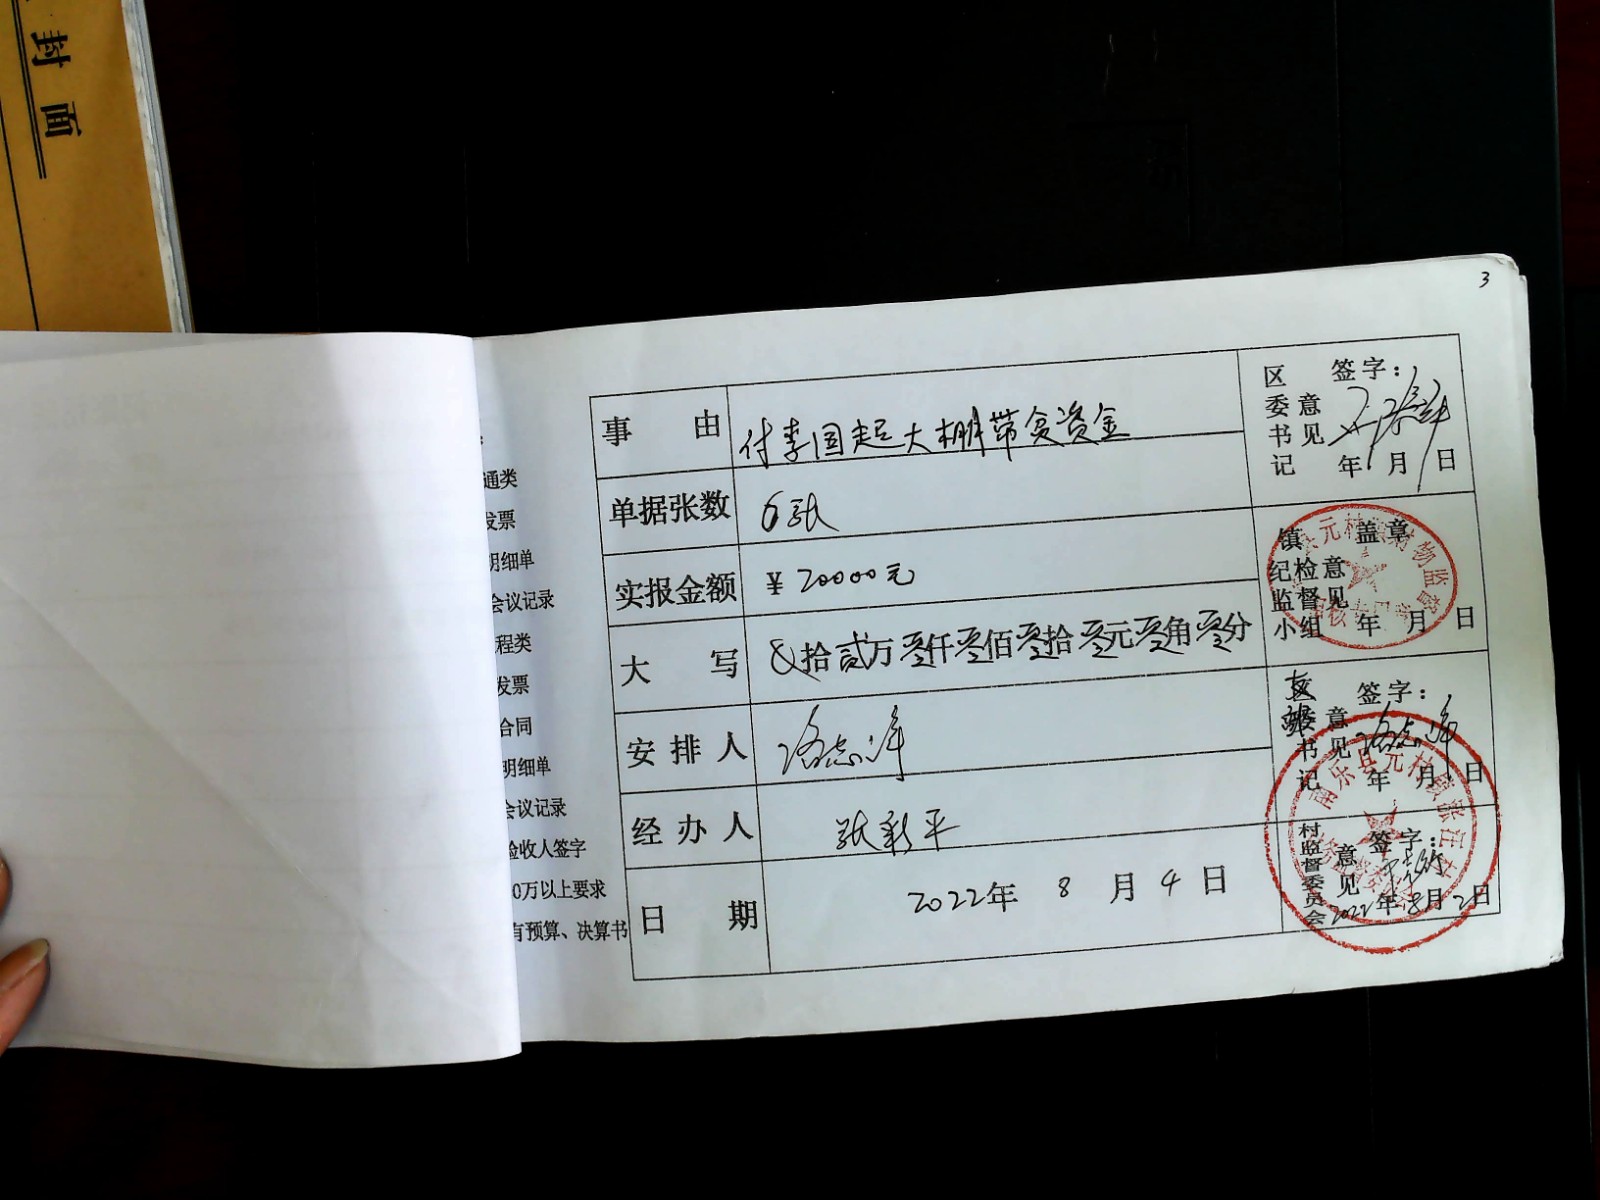 封面
3
通类
发票
明细单
会议记录
程类
发票
合同
明细单
会议记录
验收人签字
0万以上要求
有预算、决算书
事 由 付李国起大棚带贫资金
单据张数 6张
实报金额 ¥20000元
大 写 拾贰万零仟零佰零拾零元零角零分
安排人
经办人 张彩平
日 期 2022年 8 月 4 日
区委书记 意见 签字：
年 月 日
镇纪检监督小组 意见 盖章
年 月 日
书记 意见 签字：
年 月 日
村监督委员会 意见 签字：
2022年8月2日
元村镇财物监督
南乐县元村镇